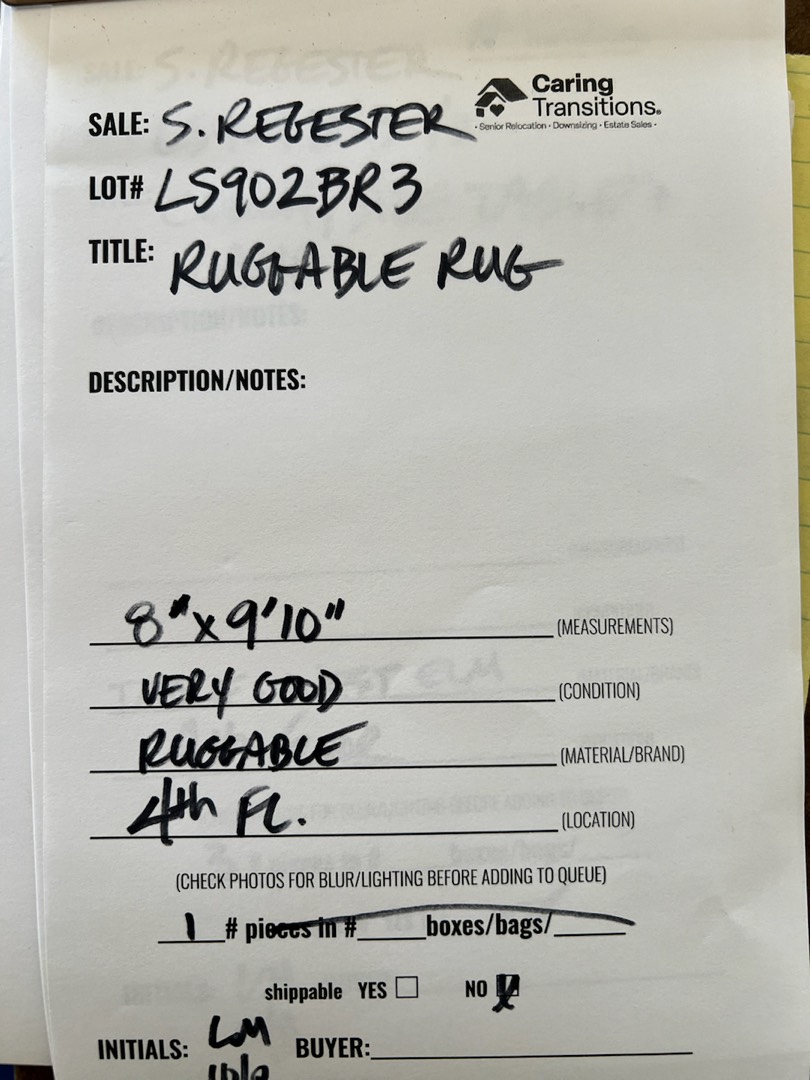 Caring
Transitions®
• Senior Relocation • Downsizing • Estate Sales •
SALE: S. REGESTER
LOT# LS902BR3
TITLE: RUGGABLE RUG
DESCRIPTION/NOTES:
8" x 9'10" (MEASUREMENTS)
VERY GOOD (CONDITION)
RUGGABLE (MATERIAL/BRAND)
4th FL. (LOCATION)
(CHECK PHOTOS FOR BLUR/LIGHTING BEFORE ADDING TO QUEUE)
1 # pieces in # boxes/bags/
shippable YES NO
INITIALS: LM BUYER: